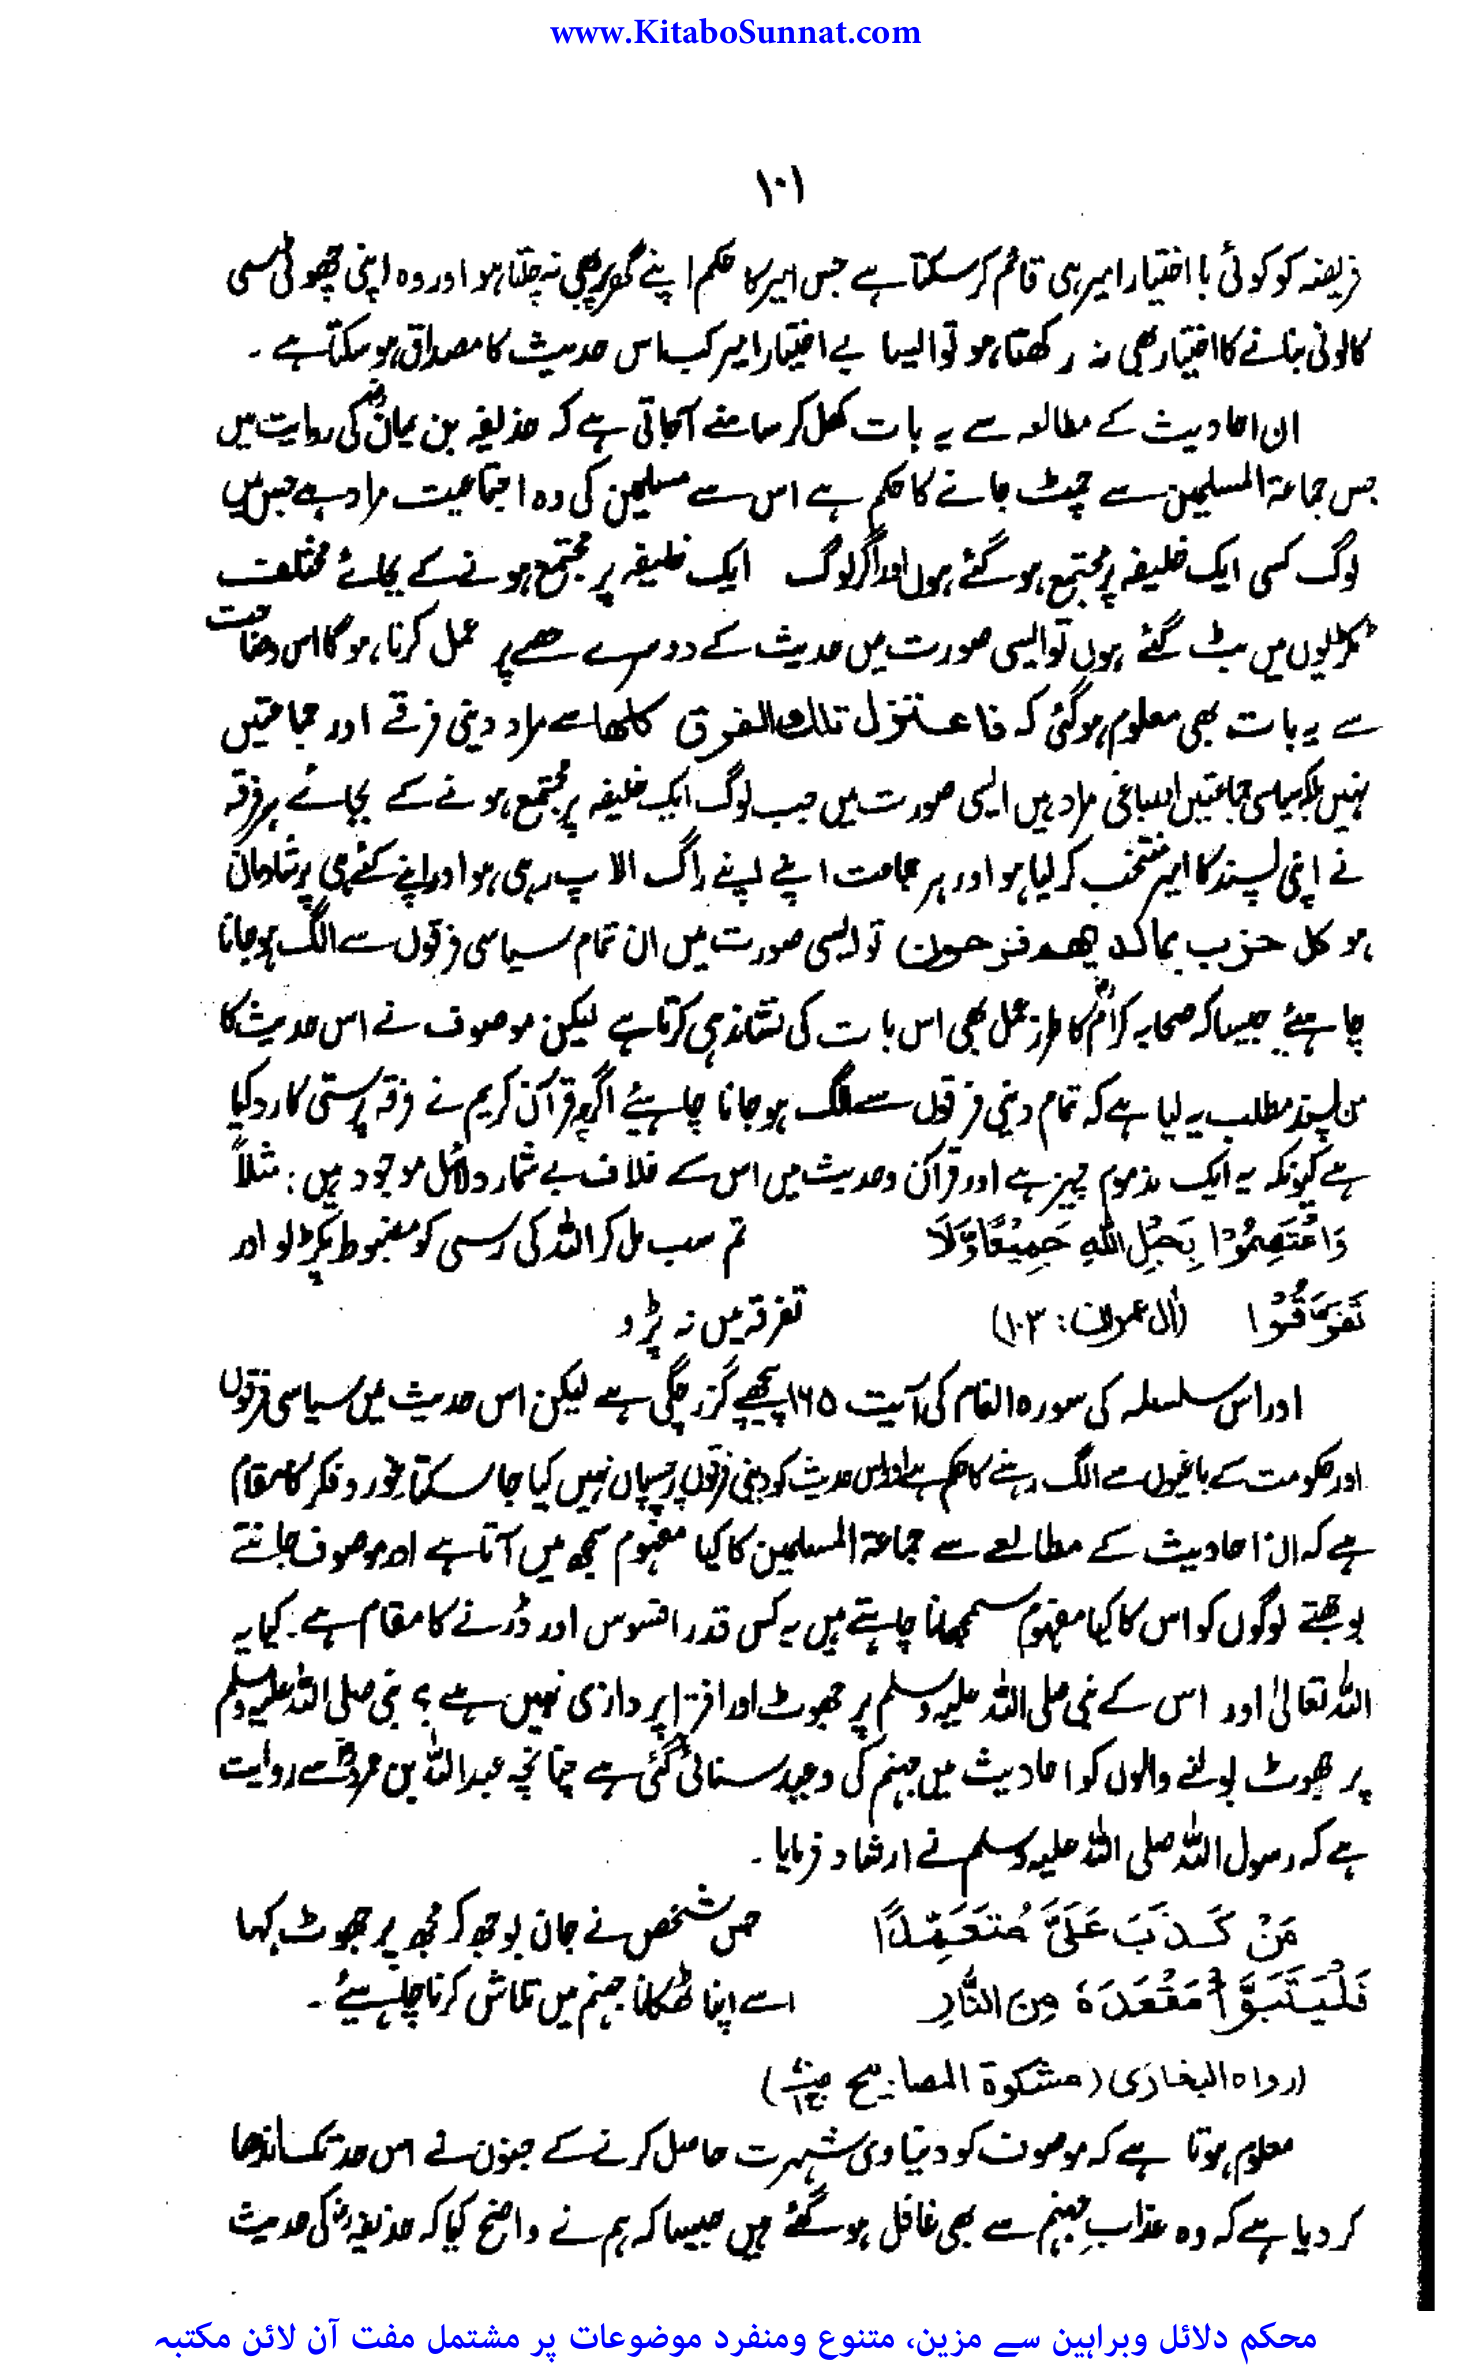 www.KitaboSunnat.com
۱۰۱
فریضہ کو کوئی با اختیار امیر ہی قائم کر سکتا ہے جس امیر کا حکم اپنے گھر پر بھی نہ چلتا ہو اور وہ اپنی چھوٹی سی
کالونی بنانے کا اختیار بھی نہ رکھتا ہو تو ایسا بے اختیار امیر کب اس حدیث کا مصداق ہو سکتا ہے ۔
ان احادیث کے مطالعہ سے یہ بات کھل کر سامنے آجاتی ہے کہ حذیفہ بن یمانؓ کی روایت میں
جس جماعۃ المسلمین سے چمٹ جانے کا حکم ہے اس سے مسلمین کی وہ اجتماعیت مراد ہے جس میں
لوگ کسی ایک خلیفہ پر مجتمع ہو گئے ہوں اور اگر لوگ ایک خلیفہ پر مجتمع ہونے کے بجائے مختلف
ٹکڑیوں میں بٹ گئے ہوں تو ایسی صورت میں حدیث کے دوسرے حصے پر عمل کرنا ہو گا اس وضاحت
سے یہ بات بھی معلوم ہو گئی کہ فاعتزل تلك الفرق کلھا سے مراد دینی فرقے اور جماعتیں
نہیں بلکہ سیاسی جماعتیں اور باغی مراد ہیں ایسی صورت میں جب لوگ ایک خلیفہ پر مجتمع ہونے کے بجائے ہر فرقہ
نے اپنی پسند کا امیر منتخب کر لیا ہو اور ہر جماعت اپنے اپنے راگ الاپ رہی ہو اور اپنے کئے ہی پر شادمان
ہو کل حزب بما لدیھم فرحون تو ایسی صورت میں ان تمام سیاسی فرقوں سے الگ ہو جانا
چاہیئے جیسا کہ صحابہ کرامؓ کا طرز عمل بھی اس بات کی نشاندہی کرتا ہے لیکن موصوف نے اس حدیث کا
من پسند مطلب یہ لیا ہے کہ تمام دینی فرقوں سے الگ ہو جانا چاہیئے اگرچہ قرآن کریم نے فرقہ پرستی کا رد کیا
ہے کیونکہ یہ ایک مذموم چیز ہے اور قرآن وحدیث میں اس کے خلاف بے شمار دلائل موجود ہیں : مثلاً
وَاعْتَصِمُوْا بِحَبْلِ اللّٰهِ جَمِيْعًا وَّلَا تم سب مل کر اللہ کی رسی کو مضبوط پکڑ لو اور
تَفَرَّقُوْا (اٰل عمران : ۱۰۳) تفرقہ میں نہ پڑو
اور اس سلسلہ کی سورہ انعام کی آیت ۱۶۵ پیچھے گزر چکی ہے لیکن اس حدیث میں سیاسی فرقوں
اور حکومت کے باغیوں سے الگ رہنے کا حکم ہے اور اس حدیث کو دینی فرقوں پر چسپاں نہیں کیا جا سکتا غور و فکر کا مقام
ہے کہ ان احادیث کے مطالعے سے جماعۃ المسلمین کا کیا مفہوم سمجھ میں آتا ہے اور موصوف جانتے
بوجھتے لوگوں کو اس کا کیا مفہوم سمجھانا چاہتے ہیں یہ کس قدر افسوس اور ڈرنے کا مقام ہے ۔ کیا یہ
اللہ تعالیٰ اور اس کے نبی صلی اللہ علیہ وسلم پر جھوٹ اور افترا پردازی نہیں ہے ؟ نبی صلی اللہ علیہ وسلم
پر جھوٹ بولنے والوں کو احادیث میں جہنم کی وعید سنائی گئی ہے چنانچہ عبداللہ بن عمروؓ سے روایت
ہے کہ رسول اللہ صلی اللہ علیہ وسلم نے ارشاد فرمایا ۔
مَنْ كَذَبَ عَلَيَّ مُتَعَمِّدًا جس شخص نے جان بوجھ کر مجھ پر جھوٹ کہا
فَلْيَتَبَوَّأْ مَقْعَدَهٗ مِنَ النَّارِ اسے اپنا ٹھکانا جہنم میں تلاش کرنا چاہیئے ۔
(رواہ البخاری (مشکوۃ المصابیح )
معلوم ہوتا ہے کہ موصوف کو دنیاوی شہرت حاصل کرنے کے جنون نے اس حد تک اندھا
کر دیا ہے کہ وہ عذابِ جہنم سے بھی غافل ہو گئے ہیں جیسا کہ ہم نے واضح کیا کہ حذیفہؓ کی حدیث
محکم دلائل وبراہین سے مزین، متنوع ومنفرد موضوعات پر مشتمل مفت آن لائن مکتبہ